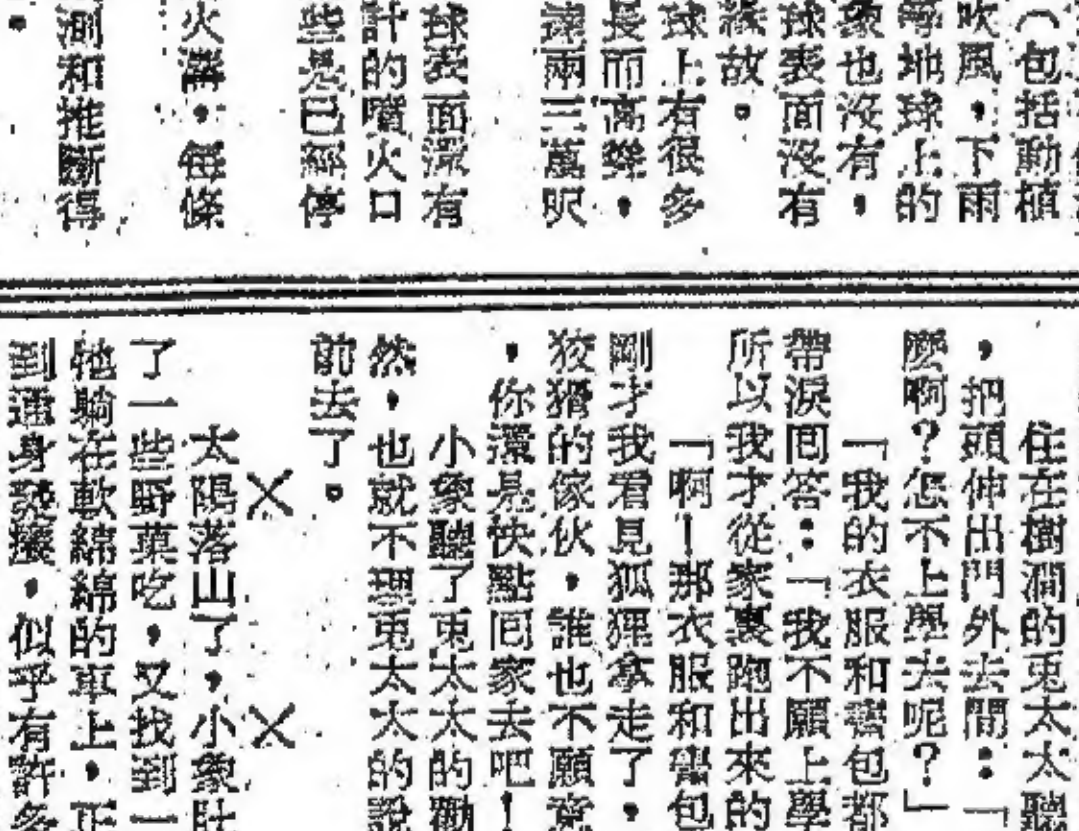 (包括動植
吹風,下雨
等地球上的
象也沒有,
球表面沒有
緣故。
球上有很多
長而高聳,
達兩三萬呎
球表面還有
計的噴火口
些是已經停
火溝,每條
測和推斷得
。
住在樹洞的兎太太聽
,把頭伸出門外去問:「
麼啊?怎不上學去呢?」
「我的衣服和書包都
帶淚囘答:「我不願上學
所以我才從家裏跑出來的
「啊!那衣服和書包
剛才我看見狐狸拿走了,
狡猾的傢伙,誰也不願意
,你還是快點囘家去吧!
小象聽了兎太太的勸
然,也就不理兎太太的說
前去了。
× ×
太陽落山了,小象肚
了一些野菓吃,又找到一
牠躺在軟綿綿的草上,正
到遍身發癢,似乎有許多